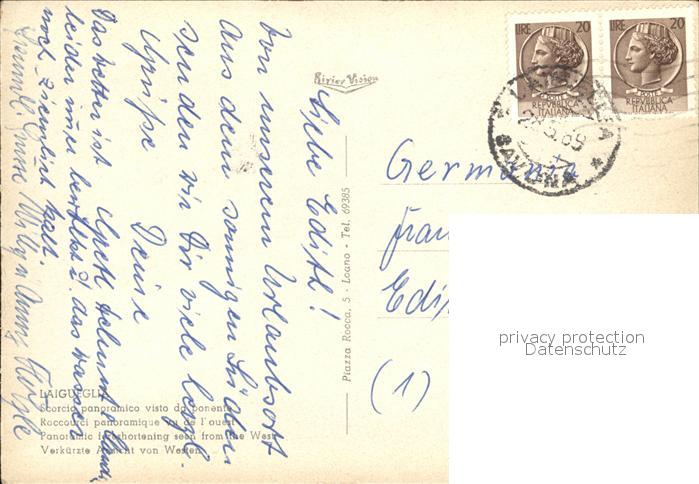 Liebe Edith!
Von unserem Urlaubsort
aus dem sonnigen Süden
senden wir Dir viele herzl.
Grüße
Deine
Das Wetter ist
leider immer bewölkt u. das Wasser
noch ziemlich kalt.
Rivier Vision
Piazza Rocca, 5 - Loano - Tel. 69385
LIRE 20
POSTE
REPVBBLICA
ITALIANA
LIRE 20
POSTE
REPVBBLICA
ITALIANA
SAVONA
Germania
(1)
privacy protection
Datenschutz
LAIGUEGLIA
Scorcio panoramico visto da ponente
Raccourci panoramique vu de l'ouest
Panoramic foreshortening seen from the West
Verkürzte Ansicht von Westen